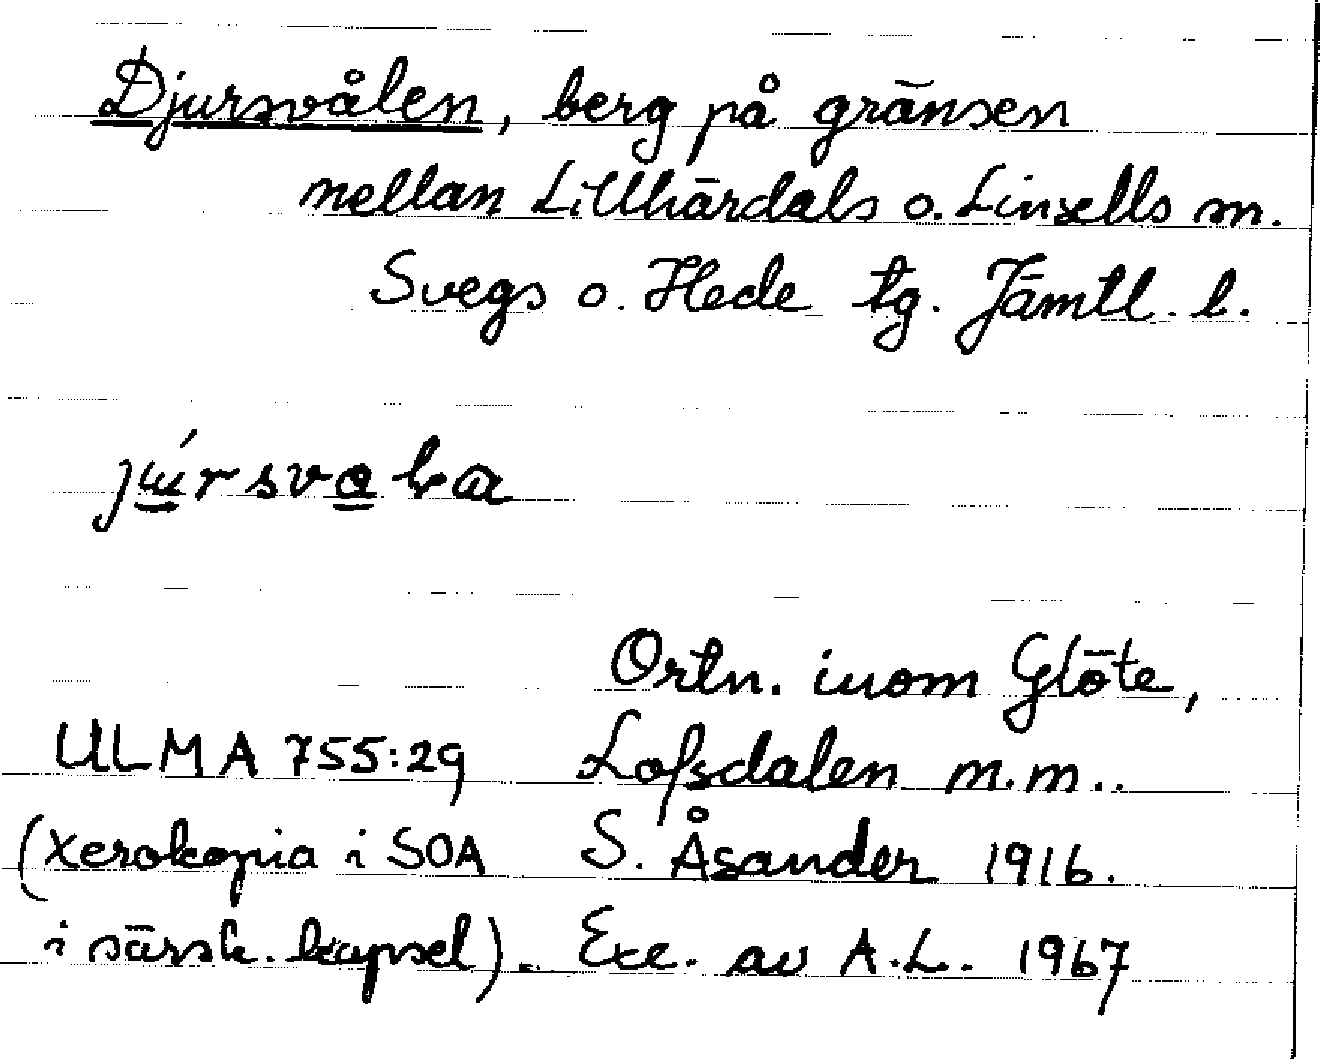 Djursvålen, berg på gränsen
mellan Lillhärdals o. Linsells sn.
Svegs o. Hede tg. Jämtl. l.
júrsvala
Ortn. inom Glöte,
ULMA 755:29 Lofsdalen m.m..
(xerokopia i SOA S. Åsander 1916.
i särsk. kapsel). Exc. av A.L. 1967